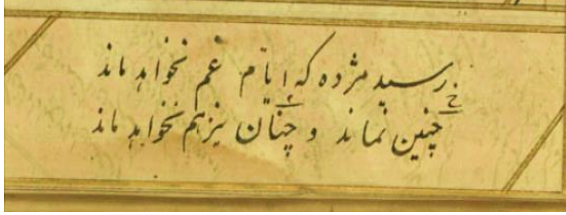 رسید مژده که ایام غم نخواهد ماند
چنین نماند و چنان نیز هم نخواهد ماند